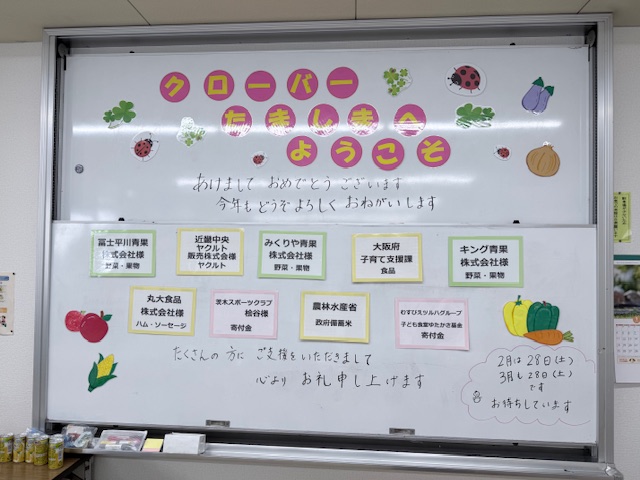 クローバー
たきしまへ
ようこそ
あけまして おめでとう ございます
今年も どうぞ よろしく おねがいします
冨士平川青果
株式会社様
野菜・果物
近畿中央
ヤクルト
販売株式会社様
ヤクルト
みくりや青果
株式会社様
野菜・果物
大阪府
子育て支援課
食品
キング青果
株式会社様
野菜・果物
丸大食品
株式会社様
ハム・ソーセージ
茨木スポーツクラブ
桧谷様
寄付金
農林水産省
政府備蓄米
むすびえツルハグループ
子ども食堂ゆたかさ基金
寄付金
たくさんの 方に ご支援を いただきまして
心より お礼 申し上げます
2月は 28日(土)
3月も 28日(土)
です
お待ちしています